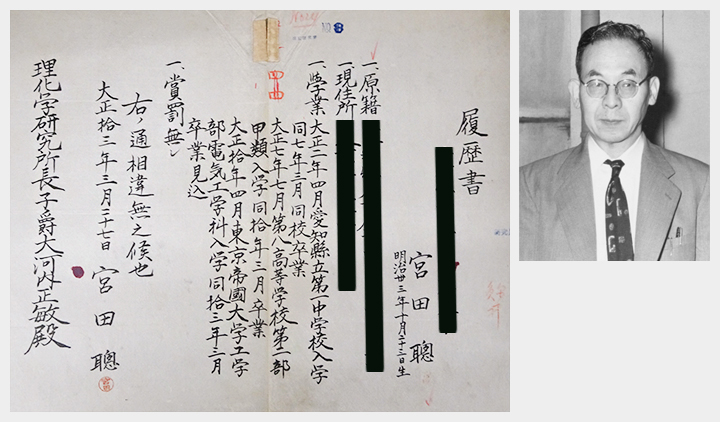 履歴書
宮田聰
明治卅三年十月二十三日生
一、原籍
一、現住所
一、學業
大正二年四月愛知縣立第一中学校入学
同七年三月同校卒業
大正七年七月第八高等学校第二部
甲類入学同拾年三月卒業
大正拾年四月東京帝國大学工学
部電気工学科入学同拾三年三月
卒業見込
一、賞罰無シ
右ノ通相違無之候也
大正拾三年三月二十七日
宮田聰
理化学研究所長子爵大河内正敏殿